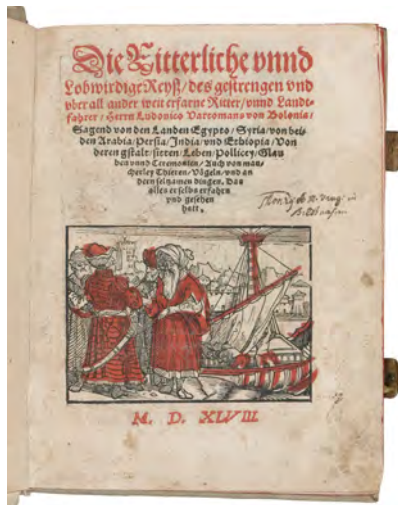 Die Ritterliche vnnd
Lobwirdige Reyß/des gestrengen vnd
vber all ander weit erfarne Ritter/vnnd Landt-
fahrer/Herrn Ludouico Vartomans von Bolonia/
Sagend von den Landen Egypto/Syria/von bei-
den Arabia/Persia/India/vnd Ethiopia/Von
deren gstalt/sitten/Leben/Pollicey/Glau
ben vnnd Ceremonien/Auch von man-
cherley Thieren/Vögeln/vnd an
dern seltzamen dingen. Das
alles er selbs erfahrn
vnd gesehen
hatt.
M. D. XLVIII.